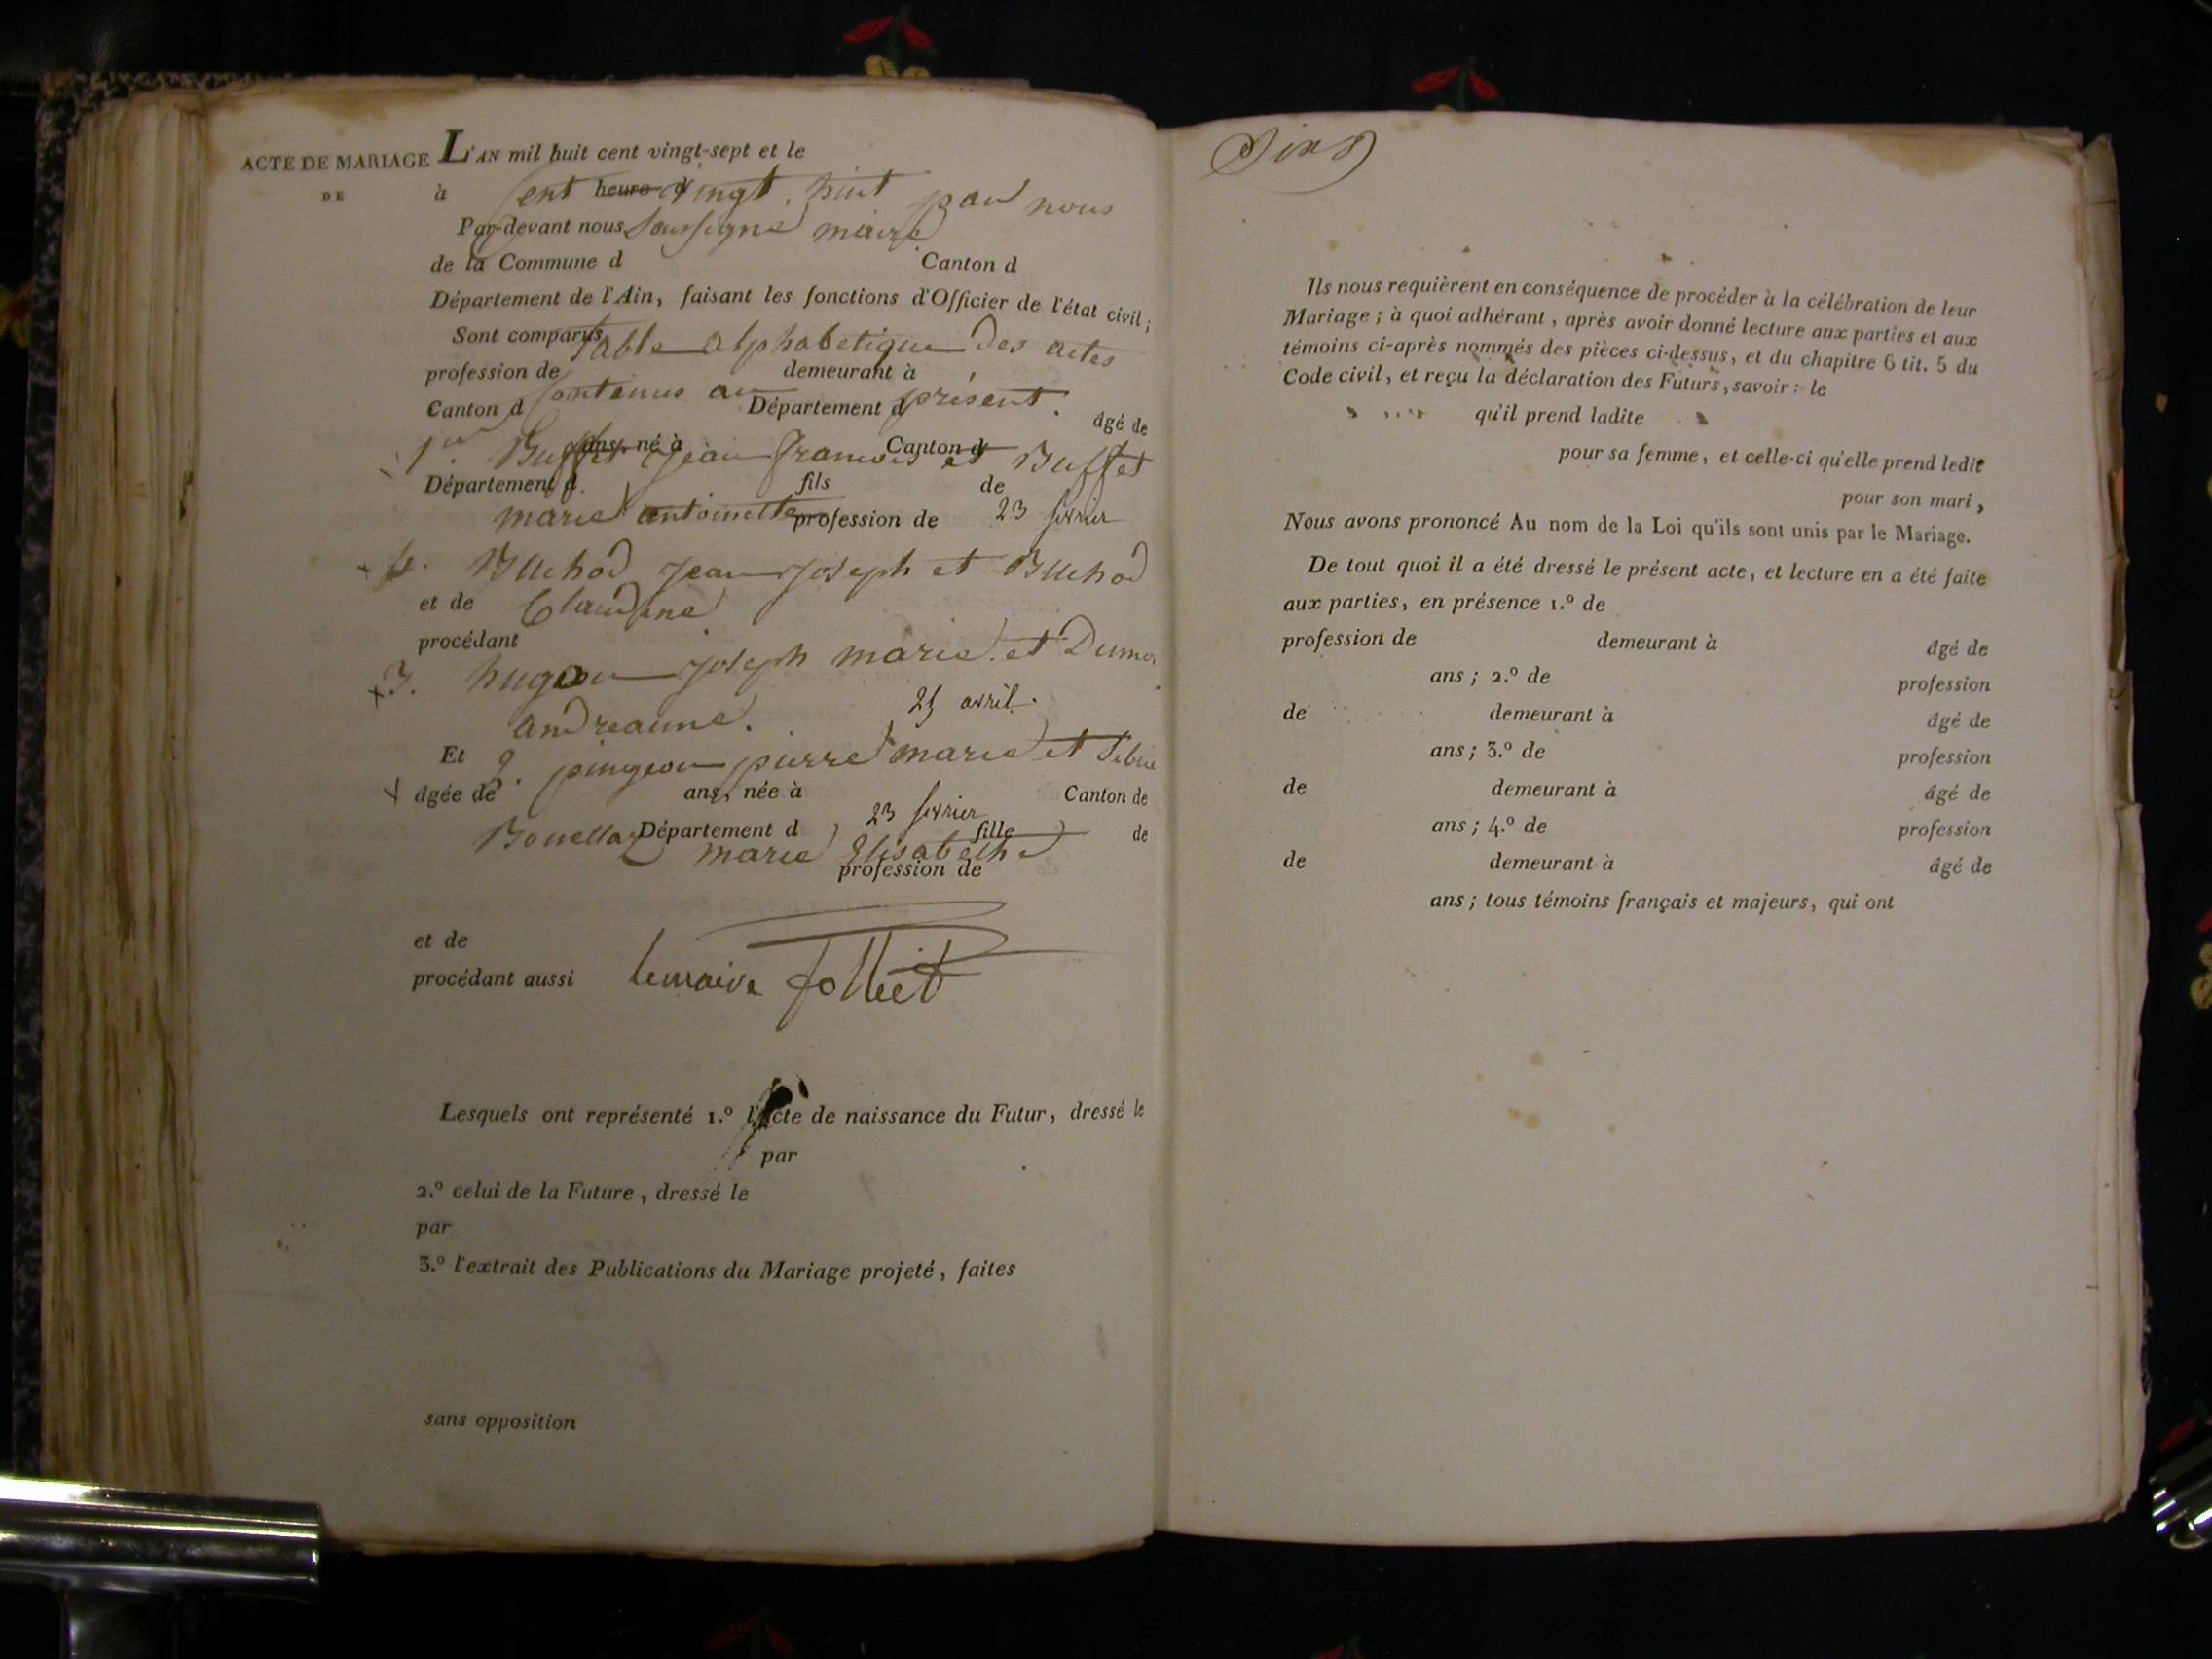 ACTE DE MARIAGE L'AN mil huit cent vingt-sept et le
DE à cent heure d vingt huit par nous
Par-devant nous Soussigné maire
de la Commune d Canton d
Département de l'Ain, faisant les fonctions d'Officier de l'état civil;
Sont comparus Table alphabetique des actes
profession de demeurant à
contenus au présent.
Canton d Département d âgé de
ans, né à Canton d
1er. Buffet jean francois et Buffet
Département d fils de
marie antoinette profession de 23 fevrier
4. Buchod jean joseph et Buchod
et de Claudine
procédant
3. hugon joseph marie et
andreanne. 25 avril.
Et 2. pingeon pierre marie et
âgée de ans, née à Canton de
23 fevrier
Département d fille de
marie Elisabethe
profession de
et de
procédant aussi lemaire folliet
Lesquels ont représenté 1.º l'acte de naissance du Futur, dressé le
par
2.º celui de la Future, dressé le
par
3.º l'extrait des Publications du Mariage projeté, faites
sans opposition
Ils nous requièrent en conséquence de procéder à la célébration de leur
Mariage; à quoi adhérant, après avoir donné lecture aux parties et aux
témoins ci-après nommés des pièces ci-dessus, et du chapitre 6 tit. 5 du
Code civil, et reçu la déclaration des Futurs, savoir: le
qu'il prend ladite
pour sa femme, et celle-ci qu'elle prend ledit
pour son mari,
Nous avons prononcé Au nom de la Loi qu'ils sont unis par le Mariage.
De tout quoi il a été dressé le présent acte, et lecture en a été faite
aux parties, en présence 1.º de
profession de demeurant à âgé de
ans; 2.º de profession
de demeurant à âgé de
ans; 3.º de profession
de demeurant à âgé de
ans; 4.º de profession
de demeurant à âgé de
ans; tous témoins français et majeurs, qui ont